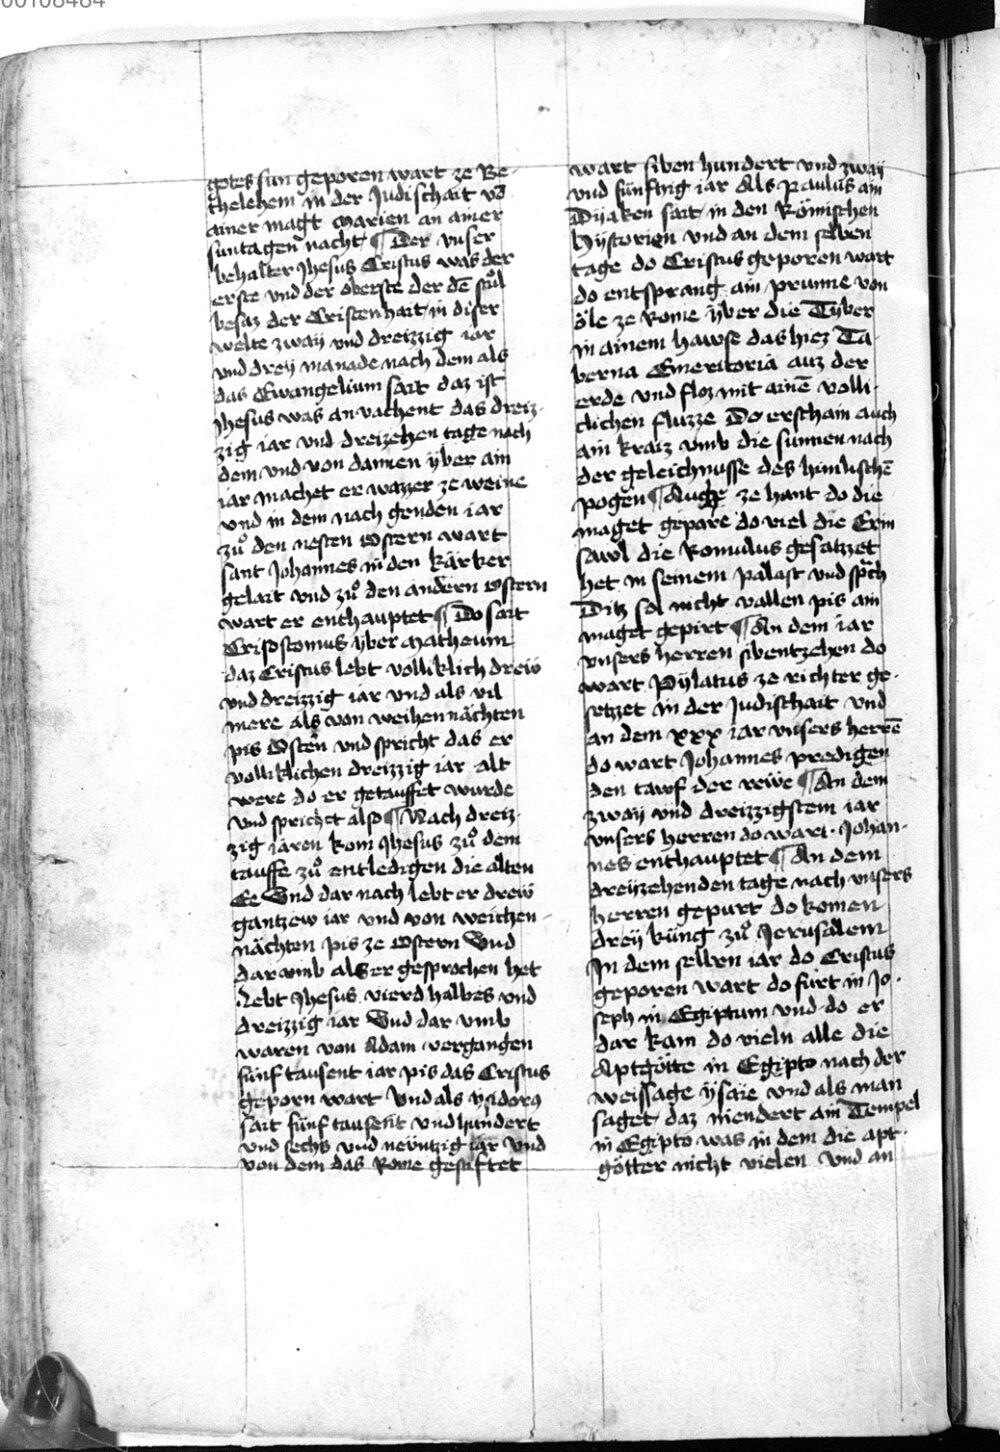 00108484
gotes sun geporen wart ze Be-
thelehem in der Judischait vō
ainer magt Marien an ainer
suntagen nacht ¶ Der vnser
behalter Jhesus Cristus was der
erste vnd der oberste der dē stůl
besaz der Cristenhait in diser
welte zway vnd dreizzig iar
vnd drey manade nach dem als
das Ewangelium sait daz ist
Jhesus was an vachent das dreiz-
zig iar vnd dreizehen tage nach
dem vnd von dannen yber ain
iar machet er wazzer ze weine
vnd in dem nach genden iar
zů den nesten Ostern wart
sant Johannes in den kärker
gelait vnd zů den andern Ostern
wart er enthauptet ¶ Do sait
Crisostomus yber Matheum
daz Cristus lebt volliklich drew
vnd dreizzig iar vnd als vil
mere als von weihennächten
pis Ostern vnd spricht das er
volliklichen dreizzig iar alt
were do er getauffet wurde
vnd sprichet also ¶ Nach dreiz-
zig iaren kom Jhesus zů dem
tauffe zů entledigen die alten
Ee Vnd dar nach lebt er drew
gantzew iar vnd von weichen-
nächten pis ze Ostern Vnd
dar vmb als er gesprochen het
Lebt Jhesus vierd halbes vnd
dreizzig iar Vnd dar vmb
waren von Adam vergangen
fünf tausent iar pis das Cristus
geporn wart Vnd als ysidorus
sait fünf tausent vnd hundert
vnd sechs vnd neüntzig iar Vnd
von dem das Rome gestiftet
wart siben hundert vnd zway
vnd fünftzig iar Als Paulus ain
Dyaken sait in den Römischen
Hystorien vnd an dem selben
tage do Cristus geporen wart
do entsprang ain prunne von
öle ze Rome yber die Tyber
in ainem hawse das hiez Ta-
berna Emeritoria auz der
erde vnd floz mit ainē volli-
clichen fluzze Do erschain auch
ain kraiz vmb die sunnen nach
der geleichnusse des himlischē
pogen ¶ Auch ze hant do die
maget gepare do viel die Erin
sawl die Romulus gesatzzet
het in seinem palast vnd sprach
Ditz sol nicht vallen pis ain
maget gepirt ¶ An dem iar
vnsers herren sibentzehen do
wart Pylatus ze richter ge-
setzzet in der Judischait vnd
an dem xxx iar vnsers herrē
do wart Johannes predigen
den tawf der rewe ¶ An dem
zway vnd dreizzigstem iar
vnsers herren do wart Johan-
nes enthauptet ¶ An dem
dreyzehenden tage nach vnsers
herren gepurt do komen
drey küng zů Jerusalem
In dem selben iar do Cristus
geporen wart do fürt in Jo-
seph in Egiptum vnd do er
dar kam do vieln alle die
Aptgötte in Egipto nach der
weissage ysaie vnd als man
saget daz niendert ain Tempel
in Egipto was in dem die apt-
götter nicht vielen Vnd an